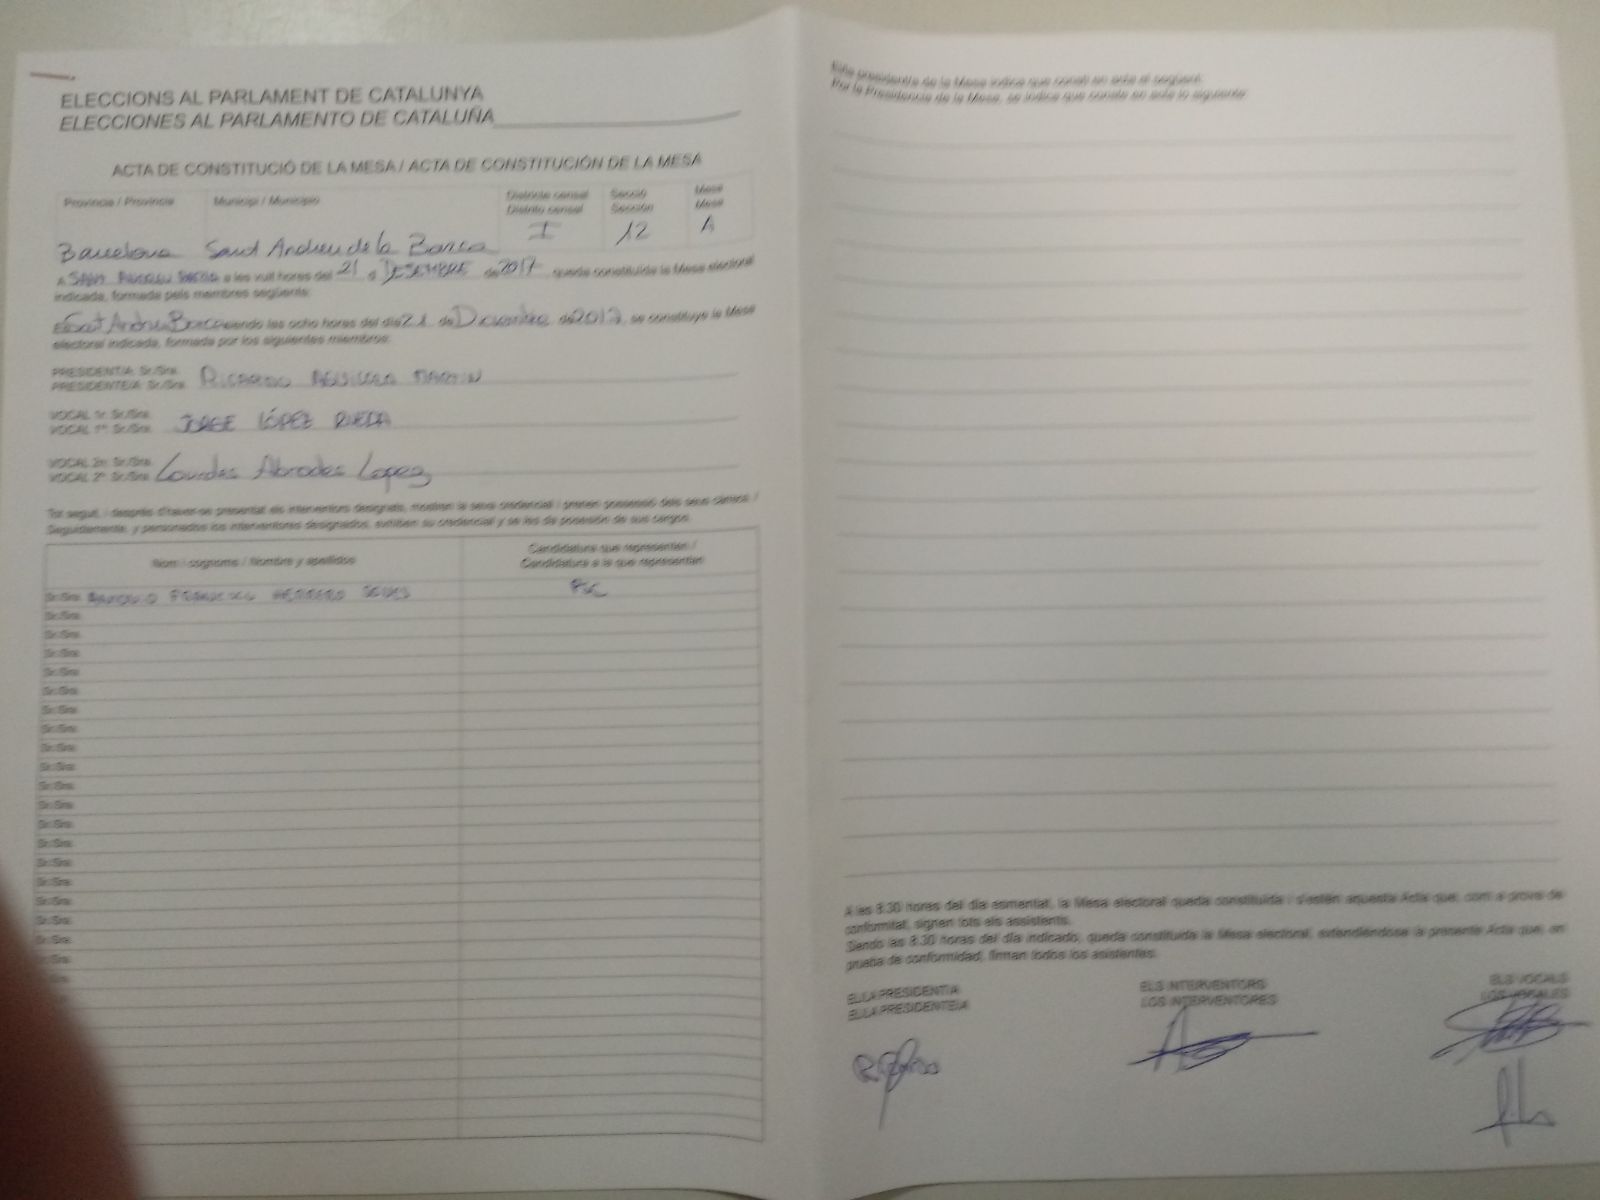 ELECCIONS AL PARLAMENT DE CATALUNYA
ELECCIONES AL PARLAMENTO DE CATALUÑA
ACTA DE CONSTITUCIÓ DE LA MESA / ACTA DE CONSTITUCIÓN DE LA MESA
Província / Provincia Municipi / Municipio Districte censal Secció Mesa
Distrito censal Sección Mesa
Barcelona Sant Andreu de la Barca I 12 A
A SANT ANDREU BARCA a les vuit hores del 21 d DESEMBRE de 2017, queda constituïda la Mesa electoral
indicada, formada pels membres següents:
En Sant Andreu Barca siendo las ocho horas del día 21 de Diciembre de 2017, se constituye la Mesa
electoral indicada, formada por los siguientes miembros:
PRESIDENT/A: Sr./Sra.
PRESIDENTE/A: Sr./Sra. RICARDO AGUILERA MARTIN
VOCAL 1r: Sr./Sra.
VOCAL 1º: Sr./Sra. JORGE LÓPEZ RUEDA
VOCAL 2n: Sr./Sra.
VOCAL 2º: Sr./Sra. Lourdes Abrodes Lopez
Tot seguit, i després d'haver-se presentat els interventors designats, mostren la seva credencial i prenen possessió dels seus càrrecs. /
Seguidamente, y personados los interventores designados, exhiben su credencial y se les da posesión de sus cargos.
Nom i cognoms / Nombre y apellidos
Candidatura que representen /
Candidatura a la que representan
Sr./Sra. ANTONIO FRANCISCO HERRERO PSC
Sr./Sra.
Sr./Sra.
Sr./Sra.
Sr./Sra.
Sr./Sra.
Sr./Sra.
Sr./Sra.
Sr./Sra.
Sr./Sra.
Sr./Sra.
Sr./Sra.
Sr./Sra.
Sr./Sra.
Sr./Sra.
Sr./Sra.
Sr./Sra.
Sr./Sra.
Sr./Sra.
presidents de la Mesa indica que consti en acta el següent:
Por la Presidencia de la Mesa, se indica que conste en acta lo siguiente:
A les 8.30 hores del dia esmentat, la Mesa electoral queda constituïda i s'estén aquesta Acta que, com a prova de
conformitat, signen tots els assistents.
Siendo las 8.30 horas del día indicado, queda constituida la Mesa electoral, extendiéndose la presente Acta que, en
prueba de conformidad, firman todos los asistentes.
EL/LA PRESIDENT/A
EL/LA PRESIDENTE/A
ELS INTERVENTORS
LOS INTERVENTORES
ELS VOCALS
LOS VOCALES